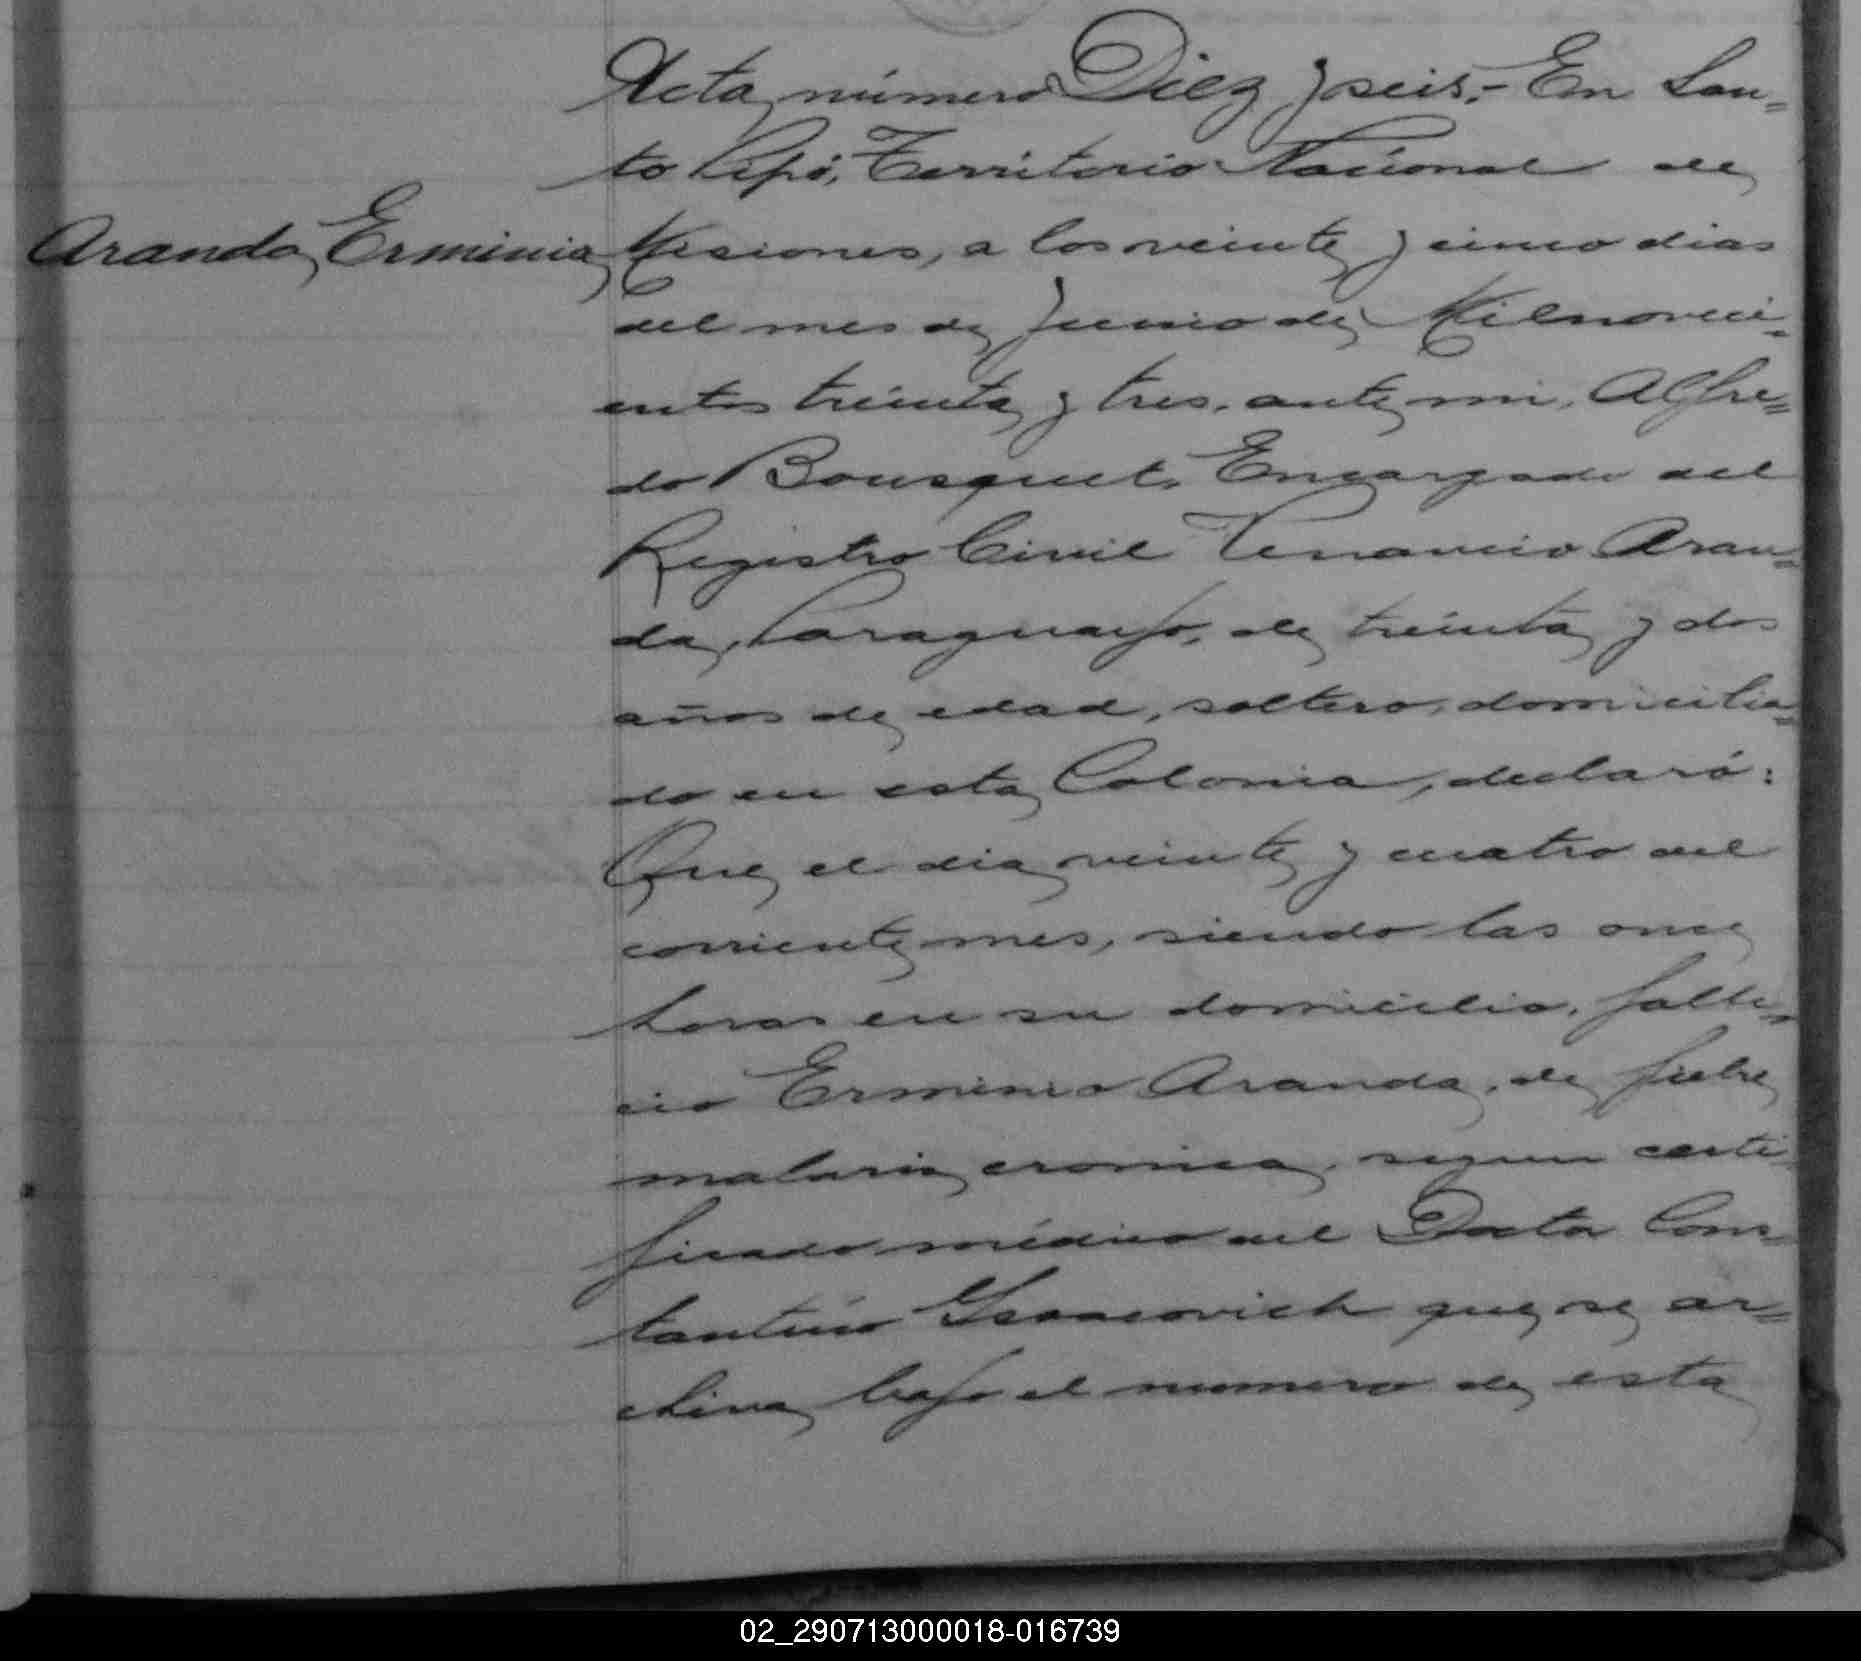 Acta número Diez y seis.- En San=
to Pipó, Territorio Nacional de
Aranda, Erminia
Misiones, a los veinte y cinco dias
del mes de Junio de Mil noveci=
entos treinta y tres. ante mi, Alfre=
do Bousquet, Encargado del
Registro Civil Venancio Aran=
da, Paraguayo, de treinta y dos
años de edad, soltero, domicilia=
do en esta Colonia, declaró:
Que el dia veinte y cuatro del
corriente mes, siendo las once
horas en su domicilio, falle=
cio Erminia Aranda, de fiebre
malaria cronica, segun certi=
ficado médico del Doctor Cons=
tantino Isacovich que se ar=
chiva bajo el numero de esta
02_290713000018-016739